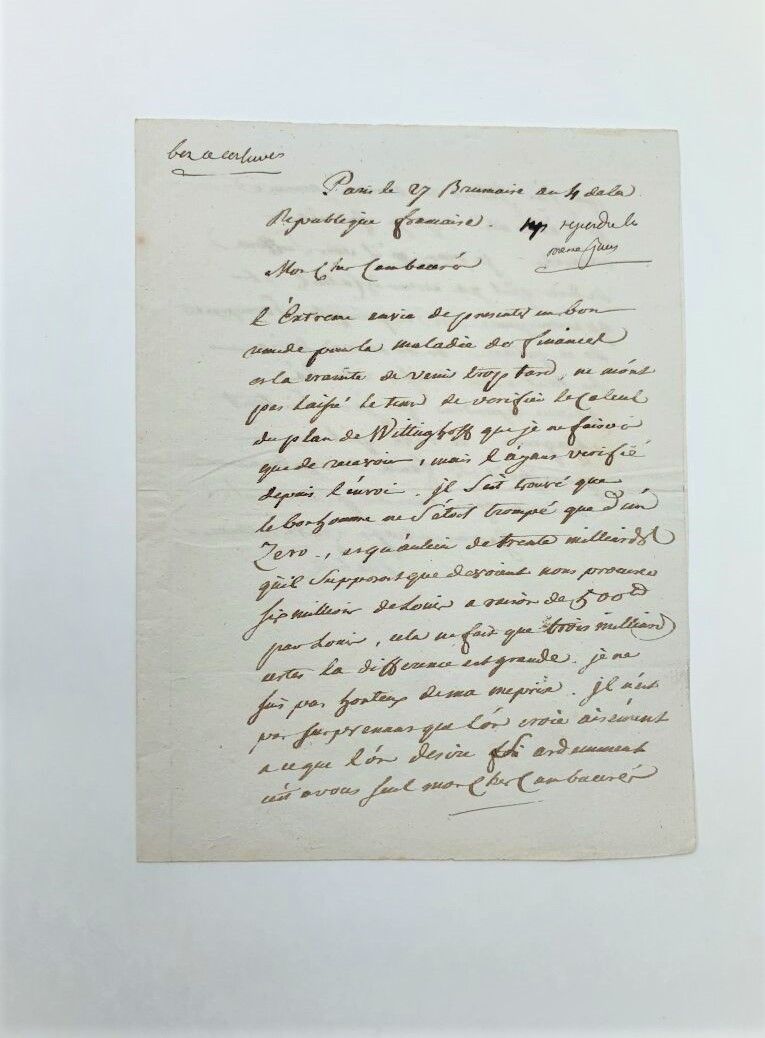 Paris le 27 Brumaire an 4 de la
Republeque francaise. rep repondu le
meme jour
Mon Cher Cambacerés
l'Extreme envie de presenter un bon
remede pour la maladie des finances
et la crainte de venir trop tard, ne m'ont
pas laissé le tems de verifier le Calcul
du plan de Willinghoff que je ne faisois
que de recevoir, mais l'ayant verifié
depuis l'envoi. jl s'est trouvé que
le bonhomme ne s'étoit trompé que d'un
Zero., et qu'aulieu de trente milliards
qu'il supposoit que devoient nous procurer
six millions de Louis a raison de 500 #
par Louis, cela ne fait que trois milliards
certes la difference est grande. je ne
suis pas honteux de ma meprise. jl n'est
pas surprenant que l'on croie aisément
a ce que l'on desire si ardemment
c'est a vous seul mon Cher Cambacerés